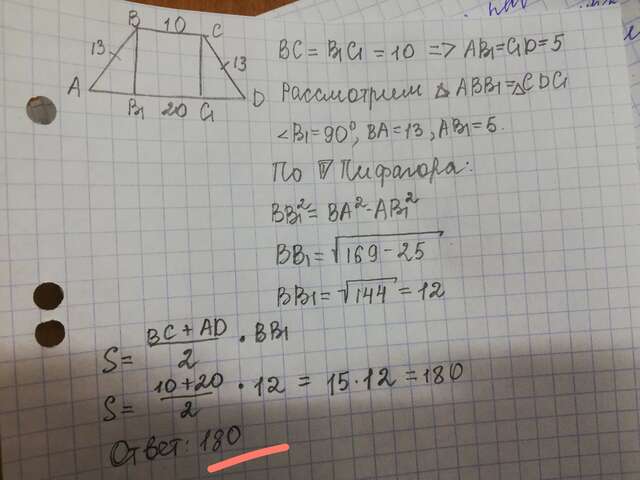 B 10 C
13 13
A B₁ 20 C₁ D
BC = B₁C₁ = 10 => AB₁ = C₁D = 5
Рассмотрим △ ABB₁ = △CDC₁
∠B₁ = 90°, BA = 13, AB₁ = 5.
По Т Пифагора:
BB₁² = BA² - AB₁²
BB₁ = √169 - 25
BB₁ = √144 = 12
S = BC + AD / 2 · BB₁
S = 10 + 20 / 2 · 12 = 15 · 12 = 180
Ответ: 180